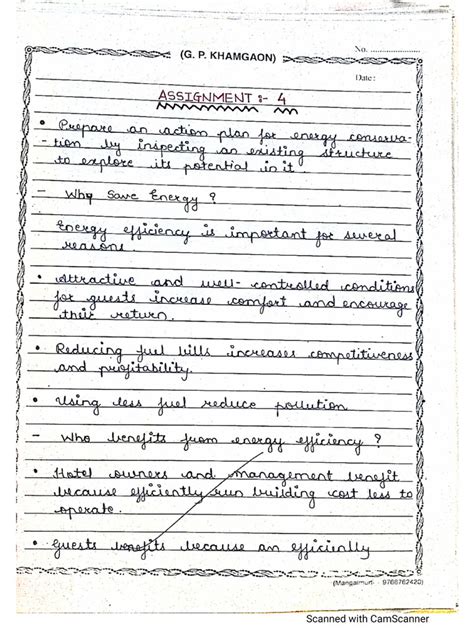 (G. P. KHAMGAON)
No. ....................
Date :
ASSIGNMENT :- 4
• Prepare an action plan for energy conserva-
tion by inspecting an existing structure
to explore its potential in it.
- Why Save Energy ?
Energy efficiency is important for several
reasons.
• Attractive and well-controlled conditions
for guests increase comfort and encourage
their return.
• Reducing fuel bills increases competitiveness
and profitability.
• Using less fuel reduce pollution
- Who benefits from energy efficiency ?
• Hotel owners and management benefit
because efficiently run building cost less to
operate.
• Guests benefits because an efficiently
(Mangalmurti - 9766762420)
Scanned with CamScanner